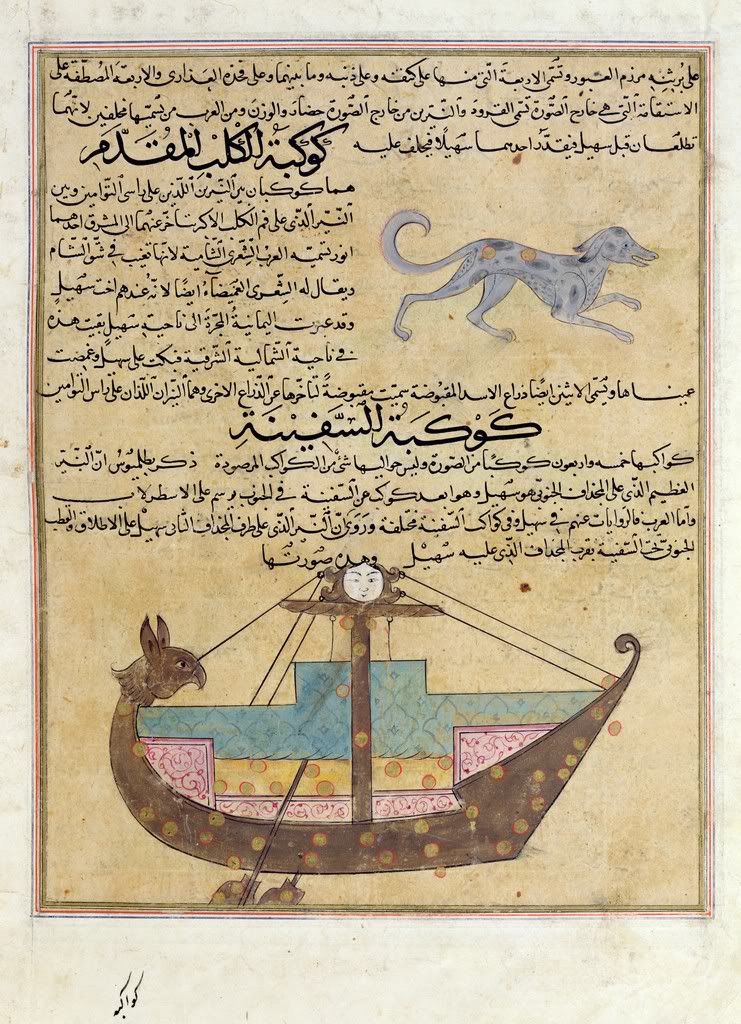 على يديه مرزم العبور وتسمى الاربعة التى منها على كتفه وعلى ذنبه وما بينهما وعلى فخذه العذارى والاربعة المصطفة على
الاستقامة التى هى خارج الصورة تسمى القرود والنيرين من خارج الصورة حضار والوزن ومن العرب من يسميها محلفين لانهما
تطلعان قبل سهيل فيقدر احدهما سهيلا فيحلف عليه
كوكبة الكلب المقدم
هما كوكبان بين النيرين اللذين على راسى التوامين وبين
النير الذى على فم الكلب الاكبر تتاخر عنهما الى المشرق احدهما
انور تسميه العرب الشعرى الشامية لانها تغيب فى شق الشام
ويقال له الشعرى الغميصاء ايضا لانه عندهم اخت سهيل
وقد عبرت اليمانية المجرة الى ناحية سهيل بقيت هذه
فى ناحية الشمالية الشرقية فبكت على سهيل وغمصت
عيناها ويسمى الاثنين ايضا ذراع الاسد المقبوضة سميت مقبوضة لتاخرها عن الذراع الاخرى وهما النيران اللذان على راس التوامين
كوكبة السفينة
كواكبها خمسه واربعون كوكبا من الصورة وليس حواليها شئ من الكواكب المرصودة ذكر بطلميوس ان النير
العظيم الذى على المجداف الجنوبى هو سهيل وهو ابعد كوكب عن السفينة فى الجنوب يرسم على الاسطرلاب
واما العرب فالروايات عنهم فى سهيل وفى كواكب السفينة مختلفة وروى ان النير الذى على طرف المجداف الثانى سهيل على الاطلاق والقطب
الجنوبى تحت السفينة بقرب المجداف الذى عليه سهيل وهذه صورتها
كواكبه